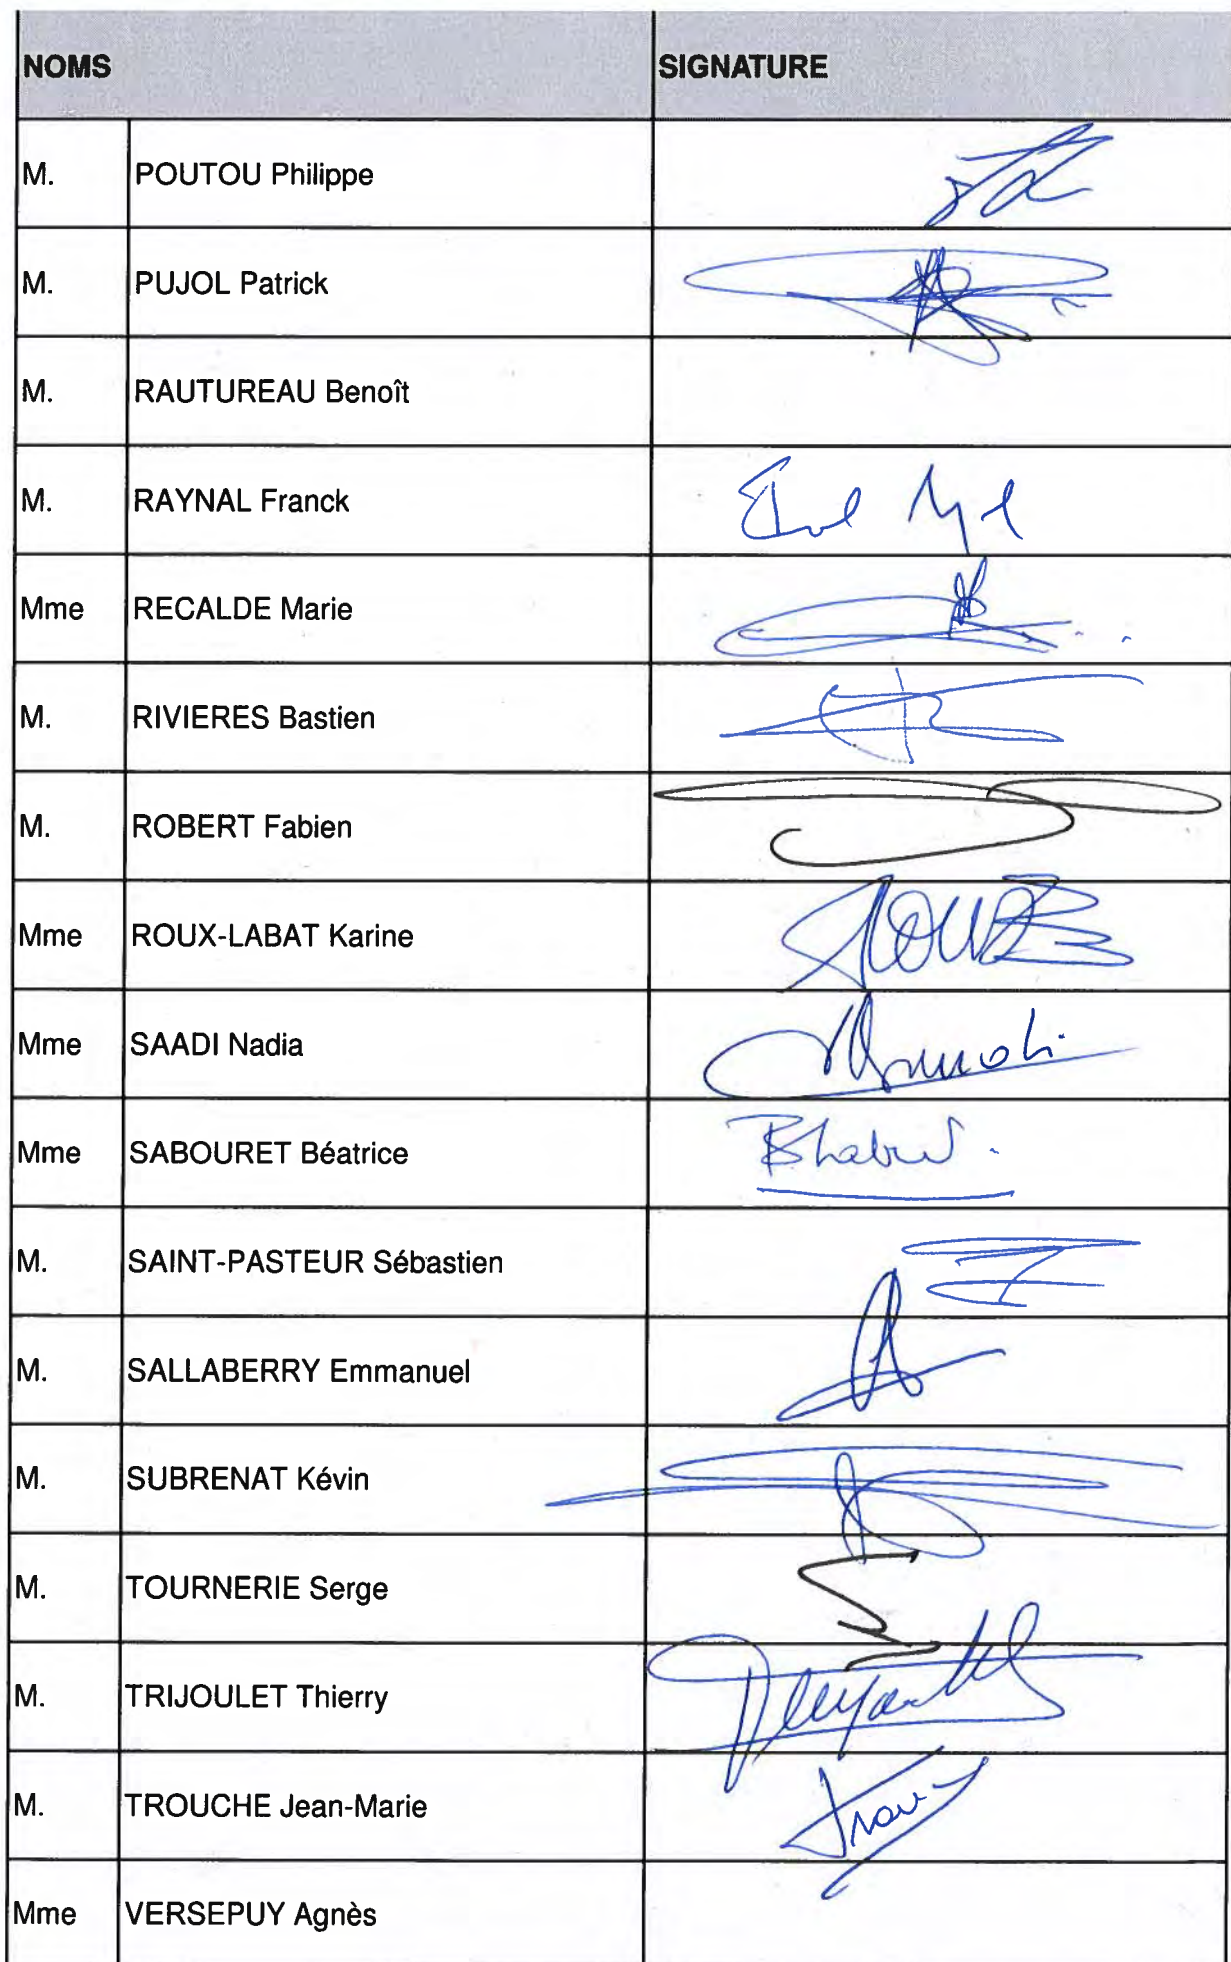 NOMS SIGNATURE
M. POUTOU Philippe
M. PUJOL Patrick
M. RAUTUREAU Benoît
M. RAYNAL Franck
Mme RECALDE Marie
M. RIVIERES Bastien
M. ROBERT Fabien
Mme ROUX-LABAT Karine
Mme SAADI Nadia
Mme SABOURET Béatrice
M. SAINT-PASTEUR Sébastien
M. SALLABERRY Emmanuel
M. SUBRENAT Kévin
M. TOURNERIE Serge
M. TRIJOULET Thierry
M. TROUCHE Jean-Marie
Mme VERSEPUY Agnès